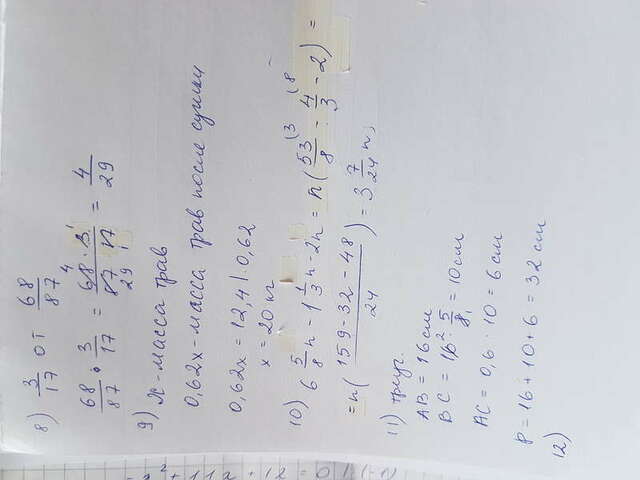 8) 3/17 от 68/87
68/87 · 3/17 = 68 · 3 / 87 · 17 = 4/29
4 1
29 1
9) x - масса трав
0,62x - масса трав после сушки
0,62x = 12,4 | : 0,62
x = 20 кг
10) 6 5/8 n - 1 1/3 n - 2n = n ( 53/8 - 4/3 - 2 ) =
(3 (8
= n ( 159 - 32 - 48 / 24 ) = 3 7/24 n;
11) треуг.
AB = 16 см
BC = 16 2 · 5/8 1 = 10 см
AC = 0,6 · 10 = 6 см
P = 16 + 10 + 6 = 32 см
12)